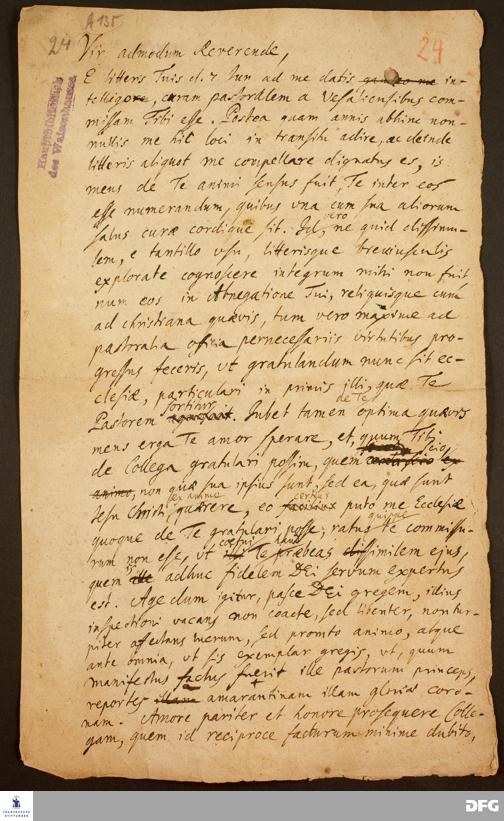 A 135
24
24
Hauptbibliothek
des Waisenhauses
Vir admodum Reverende,
E litteris Tuis d. 7 Jun ad me datis in-
tellig curam pastoralem a Vesaliensibus com-
missam Tibi esse. Postea quam annis abhinc non-
nullis me hic loci in transitu adire, ac deinde
litteris aliquot me compellare dignatus es, is
meus de Te animi sensus fuit, Te inter eos
esse numerandum, quibus una cum sua aliorum
salus curæ cordique sit. Id vero, ne quid dissimu-
lem, e tantillo usu, litterisque breviusculis
explorate cognoscere integrum mihi non fuit,
num eos in Abnegatione Tui, reliquisque cum
ad christiana quævis, tum vero maxime ad
pastoralia officia pernecessariis virtutibus pro-
gressus feceris, ut gratulandum nunc sit ec-
clesiæ, particulari in primis illi, quæ Te
Pastorem sortitur. Jubet tamen optima quævis de Te
mens erga Te amor sperare, et, quum Tibi
de Collega gratulari possim, quem scio,
non quæ sua ipsius sunt, sed ea, quæ sunt
Jesu Christi, ex animo quærere, eo certius puto me Ecclesiæ
quoque de Te gratulari posse; ratus te commissu-
rum non esse, ut Te præbeas dissimilem ejus,
quem adhuc fidelem DEi servum expertus
est. Age dum igitur, pasce DEi gregem, illius
inspectioni vacans non coacte, sed libenter, non tur-
piter affectans lucrum, sed promto animo, atque
ante omnia, ut sis exemplar gregis, ut, quum
manifestus factus fuerit ille pastorum princeps,
reportes amarantinam illam gloriæ coro-
nam. Amore pariter et honore prosequere Colle-
gam, quem id reciproce facturum minime dubito,
FRANCKESCHE STIFTUNGEN
DFG